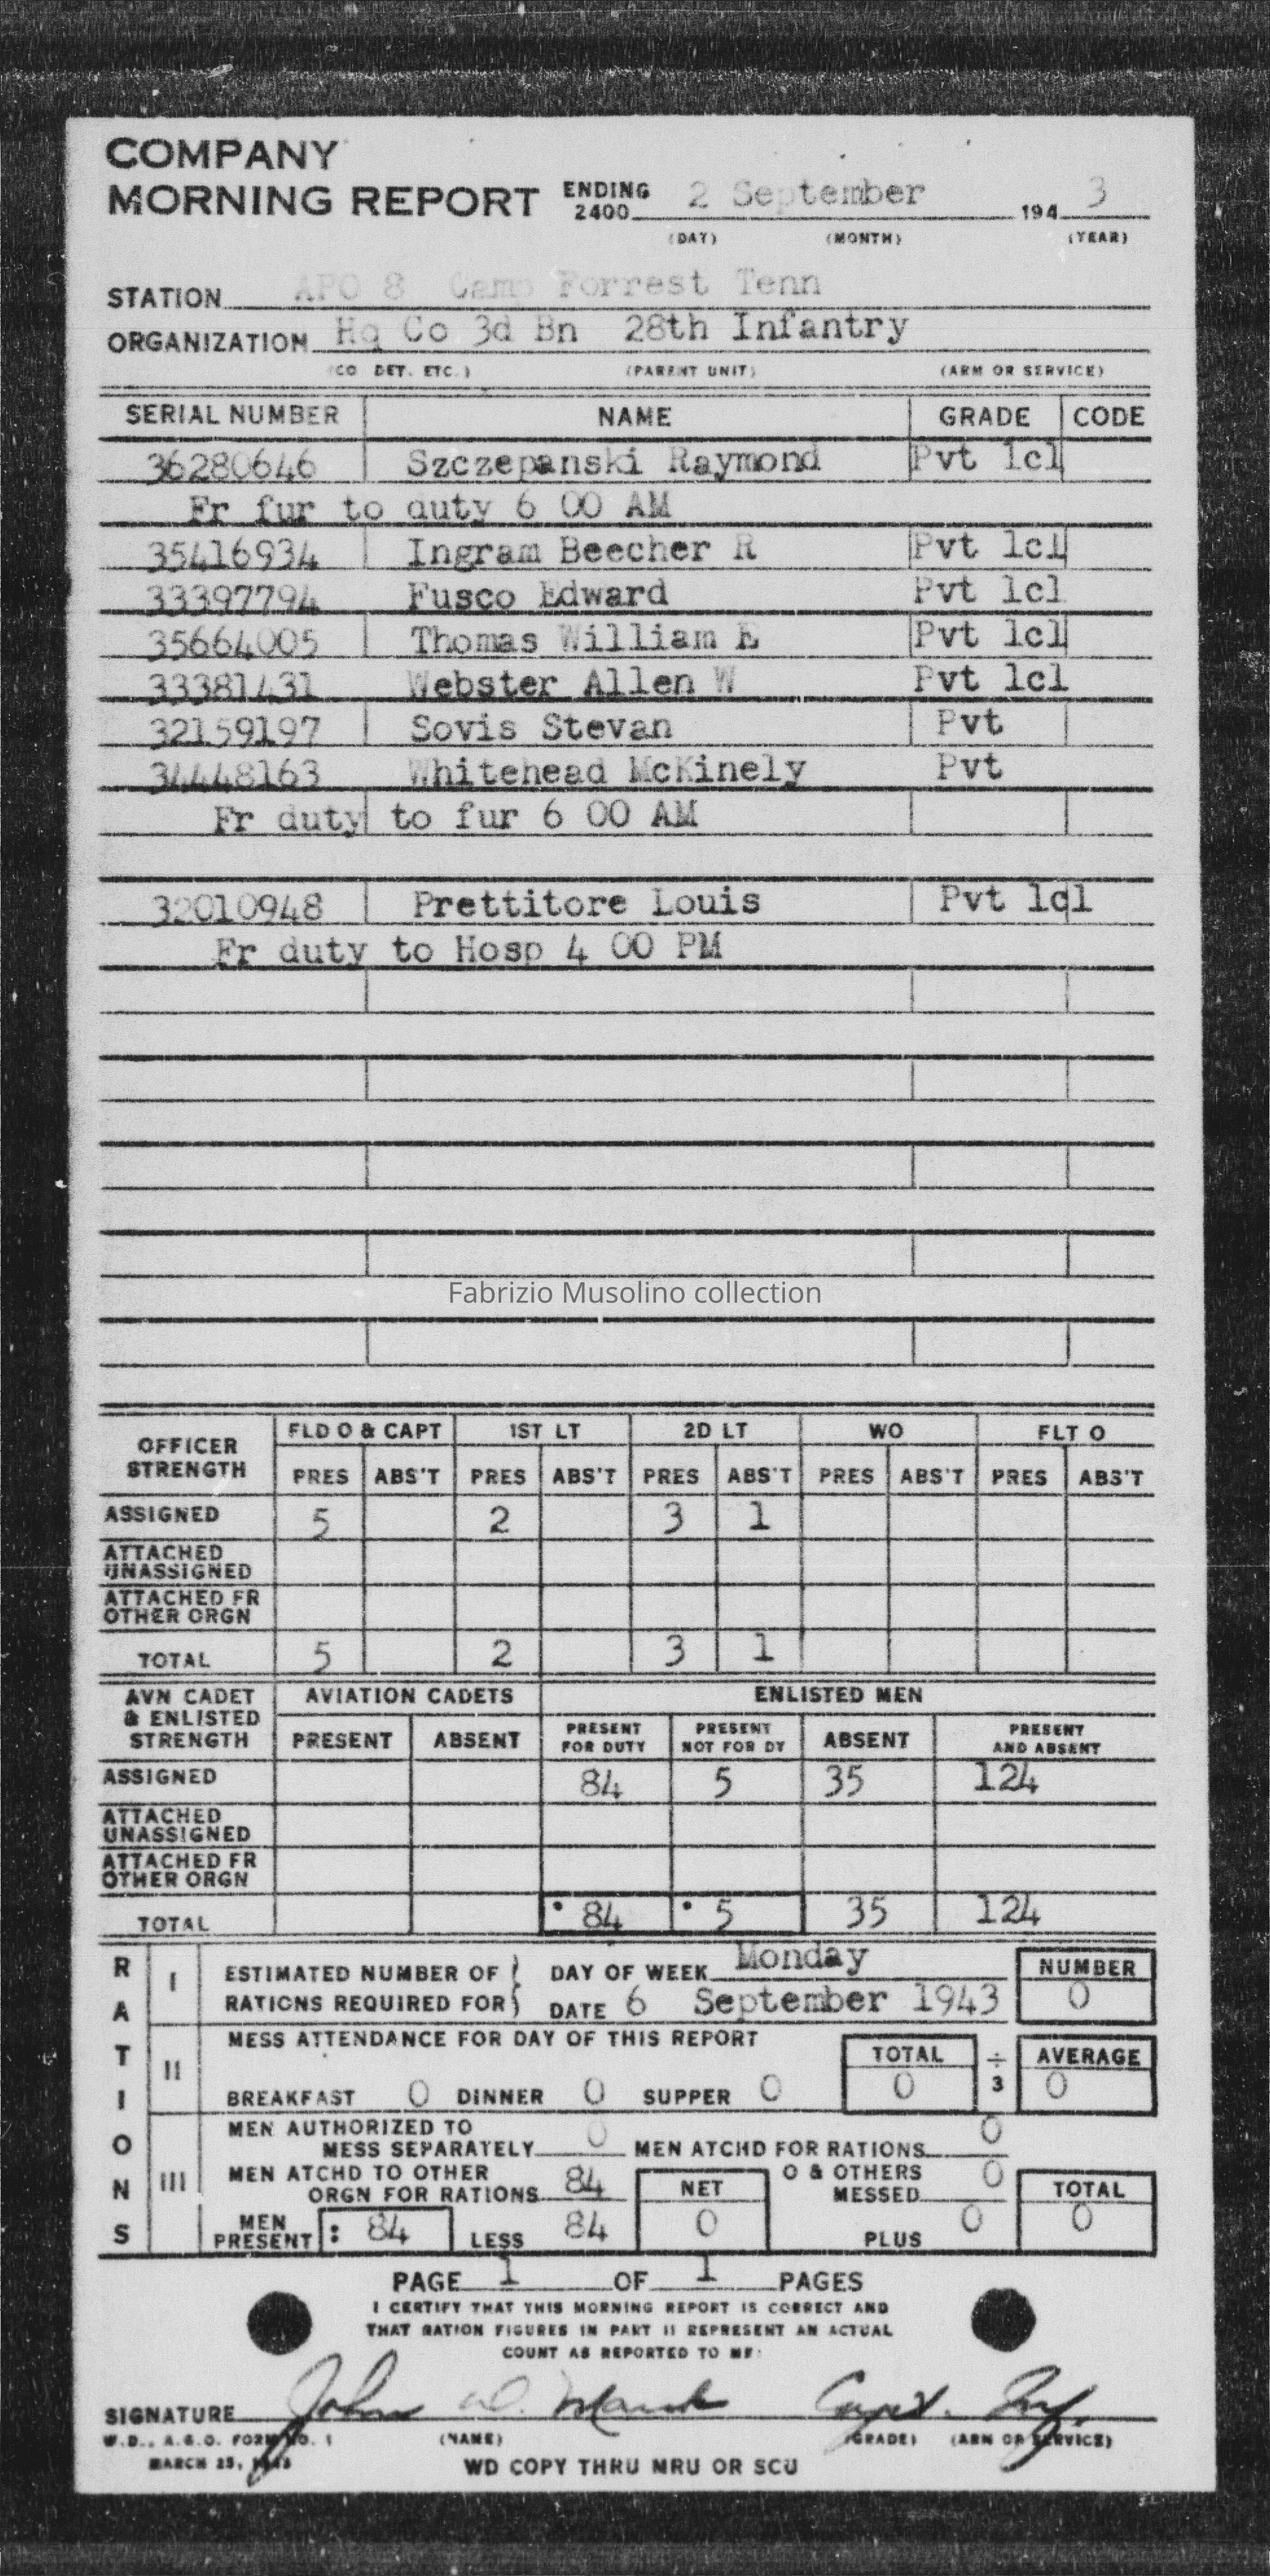 COMPANY
MORNING REPORT ENDING 2400 2 September 194 3
(DAY) (MONTH) (YEAR)
STATION APO 8 Camp Forrest Tenn
ORGANIZATION Hq Co 3d Bn 28th Infantry
(CO DET. ETC.) (PARENT UNIT) (ARM OR SERVICE)
SERIAL NUMBER NAME GRADE CODE
36280646 Szczepanski Raymond Pvt 1cl
Fr fur to duty 6 00 AM
35416934 Ingram Beecher R Pvt 1cl
33397794 Fusco Edward Pvt 1cl
35664005 Thomas William E Pvt 1cl
33381431 Webster Allen W Pvt 1cl
32159197 Sovis Stevan Pvt
34448163 Whitehead McKinely Pvt
Fr duty to fur 6 00 AM
32010948 Prettitore Louis Pvt 1cl
Fr duty to Hosp 4 00 PM
Fabrizio Musolino collection
OFFICER STRENGTH FLD O & CAPT 1ST LT 2D LT WO FLT O
PRES ABS'T PRES ABS'T PRES ABS'T PRES ABS'T PRES ABS'T
ASSIGNED 5 2 3 1
ATTACHED UNASSIGNED
ATTACHED FR OTHER ORGN
TOTAL 5 2 3 1
AVN CADET & ENLISTED STRENGTH AVIATION CADETS ENLISTED MEN
PRESENT ABSENT PRESENT FOR DUTY PRESENT NOT FOR DY ABSENT PRESENT AND ABSENT
ASSIGNED 84 5 35 124
ATTACHED UNASSIGNED
ATTACHED FR OTHER ORGN
TOTAL 84 5 35 124
RATIONS
I ESTIMATED NUMBER OF DAY OF WEEK Monday NUMBER
RATIONS REQUIRED FOR DATE 6 September 1943 0
II MESS ATTENDANCE FOR DAY OF THIS REPORT TOTAL ÷ 3 AVERAGE
BREAKFAST 0 DINNER 0 SUPPER 0 0 0
III MEN AUTHORIZED TO MESS SEPARATELY 0 MEN ATCHD FOR RATIONS 0
MEN ATCHD TO OTHER ORGN FOR RATIONS 84 NET O & OTHERS MESSED 0 TOTAL
MEN PRESENT : 84 LESS 84 0 PLUS 0 0
PAGE 1 OF 1 PAGES
I CERTIFY THAT THIS MORNING REPORT IS CORRECT AND
THAT RATION FIGURES IN PART II REPRESENT AN ACTUAL
COUNT AS REPORTED TO ME:
SIGNATURE John Capt. Inf.
W.D., A.G.O. FORM NO. 1 (NAME) (GRADE) (ARM OR SERVICE)
MARCH 25, WD COPY THRU MRU OR SCU